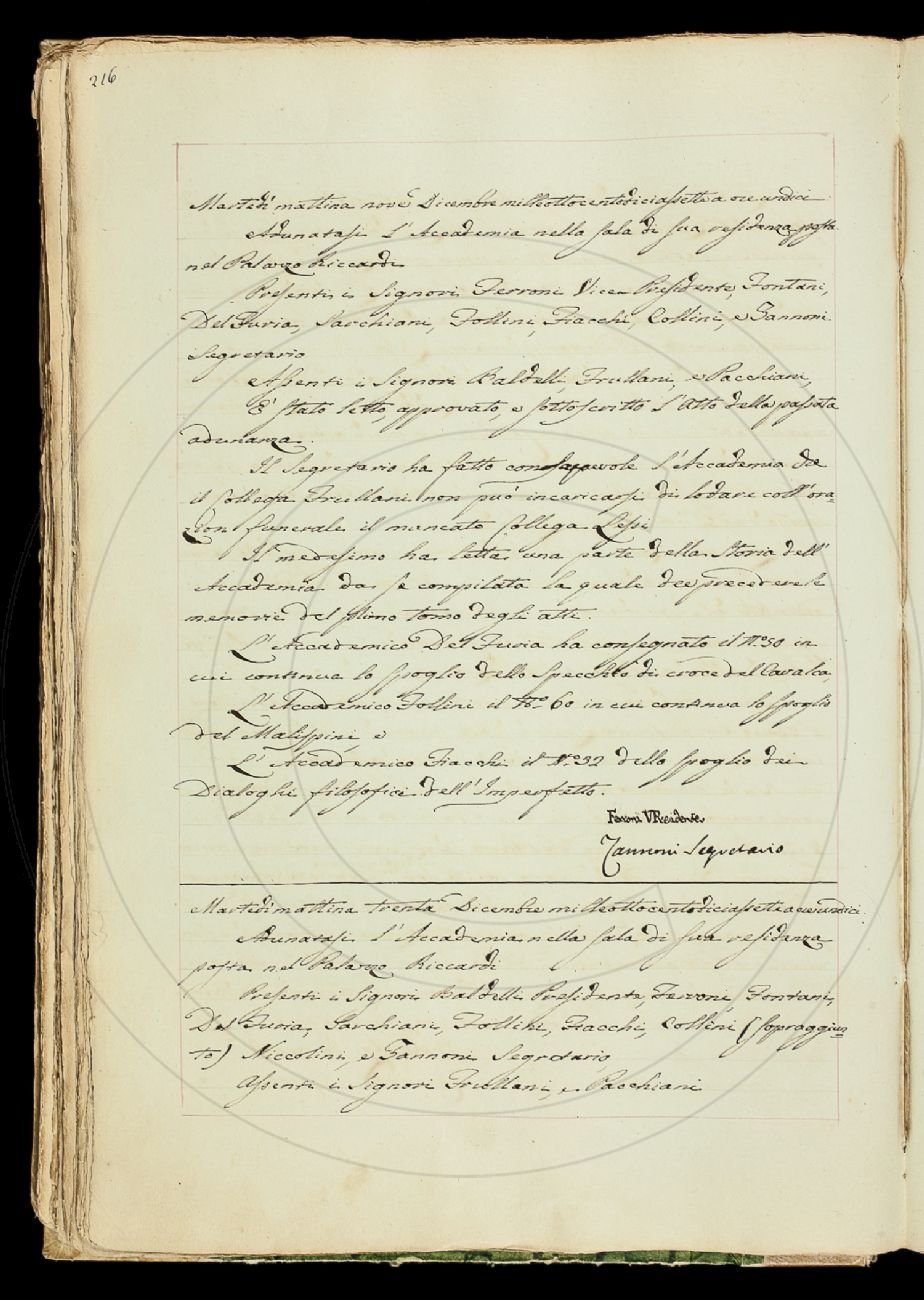 216
Martedì mattina nove Dicembre milleottocentodiciassette a ore undici
Adunatasi l'Accademia nella sala di sua residenza posta
nel Palazzo Riccardi
Presenti i Signori Ferroni Vice Presidente, Fontani,
Del Furia, Sarchiani, Follini, Fiacchi, Collini, e Zannoni
Segretario
Assenti i Signori Baldelli, Frullani, e Pacchiani,
E' stato letto, approvato, e sottoscritto l'Atto della passata
adunanza.
Il Segretario ha fatto consapevole l'Accademia che
il Collega Frullani non può incaricarsi di lodare coll'ora=
zion funerale il mancato Collega Lessi
Il medesimo ha letta una parte della Storia dell'
Accademia da se compilata la quale dee precedere le
memorie del primo tomo degli atti.
L'Accademico Del Furia ha consegnato il N.º 50 in
cui continua lo spoglio dello Specchio di croce del Cavalca,
L'Accademico Follini il N.º 60 in cui continua lo spoglio
del Malispini, e
L'Accademico Fiacchi il N.º 32 dello spoglio dei
Dialoghi filosofici dell'Imperfetto.
Ferroni V. Presidente
Zannoni Segretario
Martedì mattina trenta Dicembre milleottocentodiciassette a ore undici
Adunatasi l'Accademia nella sala di sua residenza
posta nel Palazzo Riccardi
Presenti i Signori Baldelli Presidente, Ferroni, Fontani,
Del Furia, Sarchiani, Follini, Fiacchi, Collini (sopraggiun=
to) Niccolini, e Zannoni Segretario
Assenti i Signori Frullani, e Pacchiani